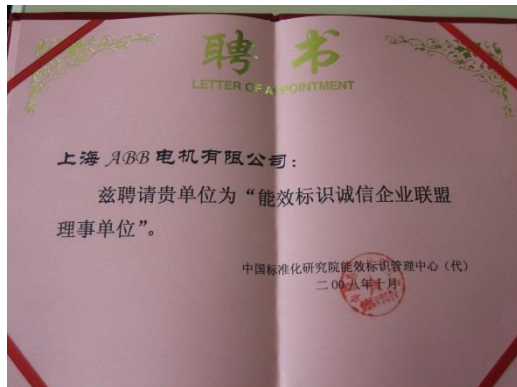 聘书
LETTER OF APPOINTMENT
上海ABB电机有限公司：
兹聘请贵单位为“能效标识诚信企业联盟
理事单位”。
中国标准化研究院能效标识管理中心（代）
二00八年十月